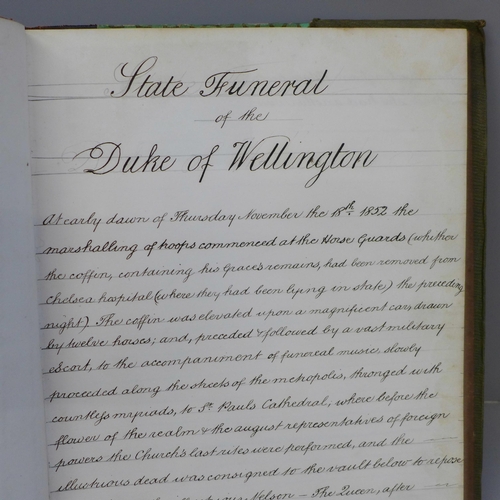 State Funeral
of the
Duke of Wellington
At early dawn of Thursday November the 18th. 1852 the
marshalling of troops commenced at the Horse Guards (whither
the coffin, containing his Grace's remains, had been removed from
Chelsea hospital (where they had been lying in state) the preceding
night) The coffin was elevated upon a magnificent car, drawn
by twelve horses; and, preceded & followed by a vast military
escort, to the accompaniment of funereal music, slowly
proceeded along the streets of the metropolis, thronged with
countless myriads, to St. Pauls Cathedral, where before the
flower of the realm & the august representatives of foreign
powers the Church's last rites were performed, and the
illustrious dead was consigned to the vault below to repose
Nelson – The Queen, after